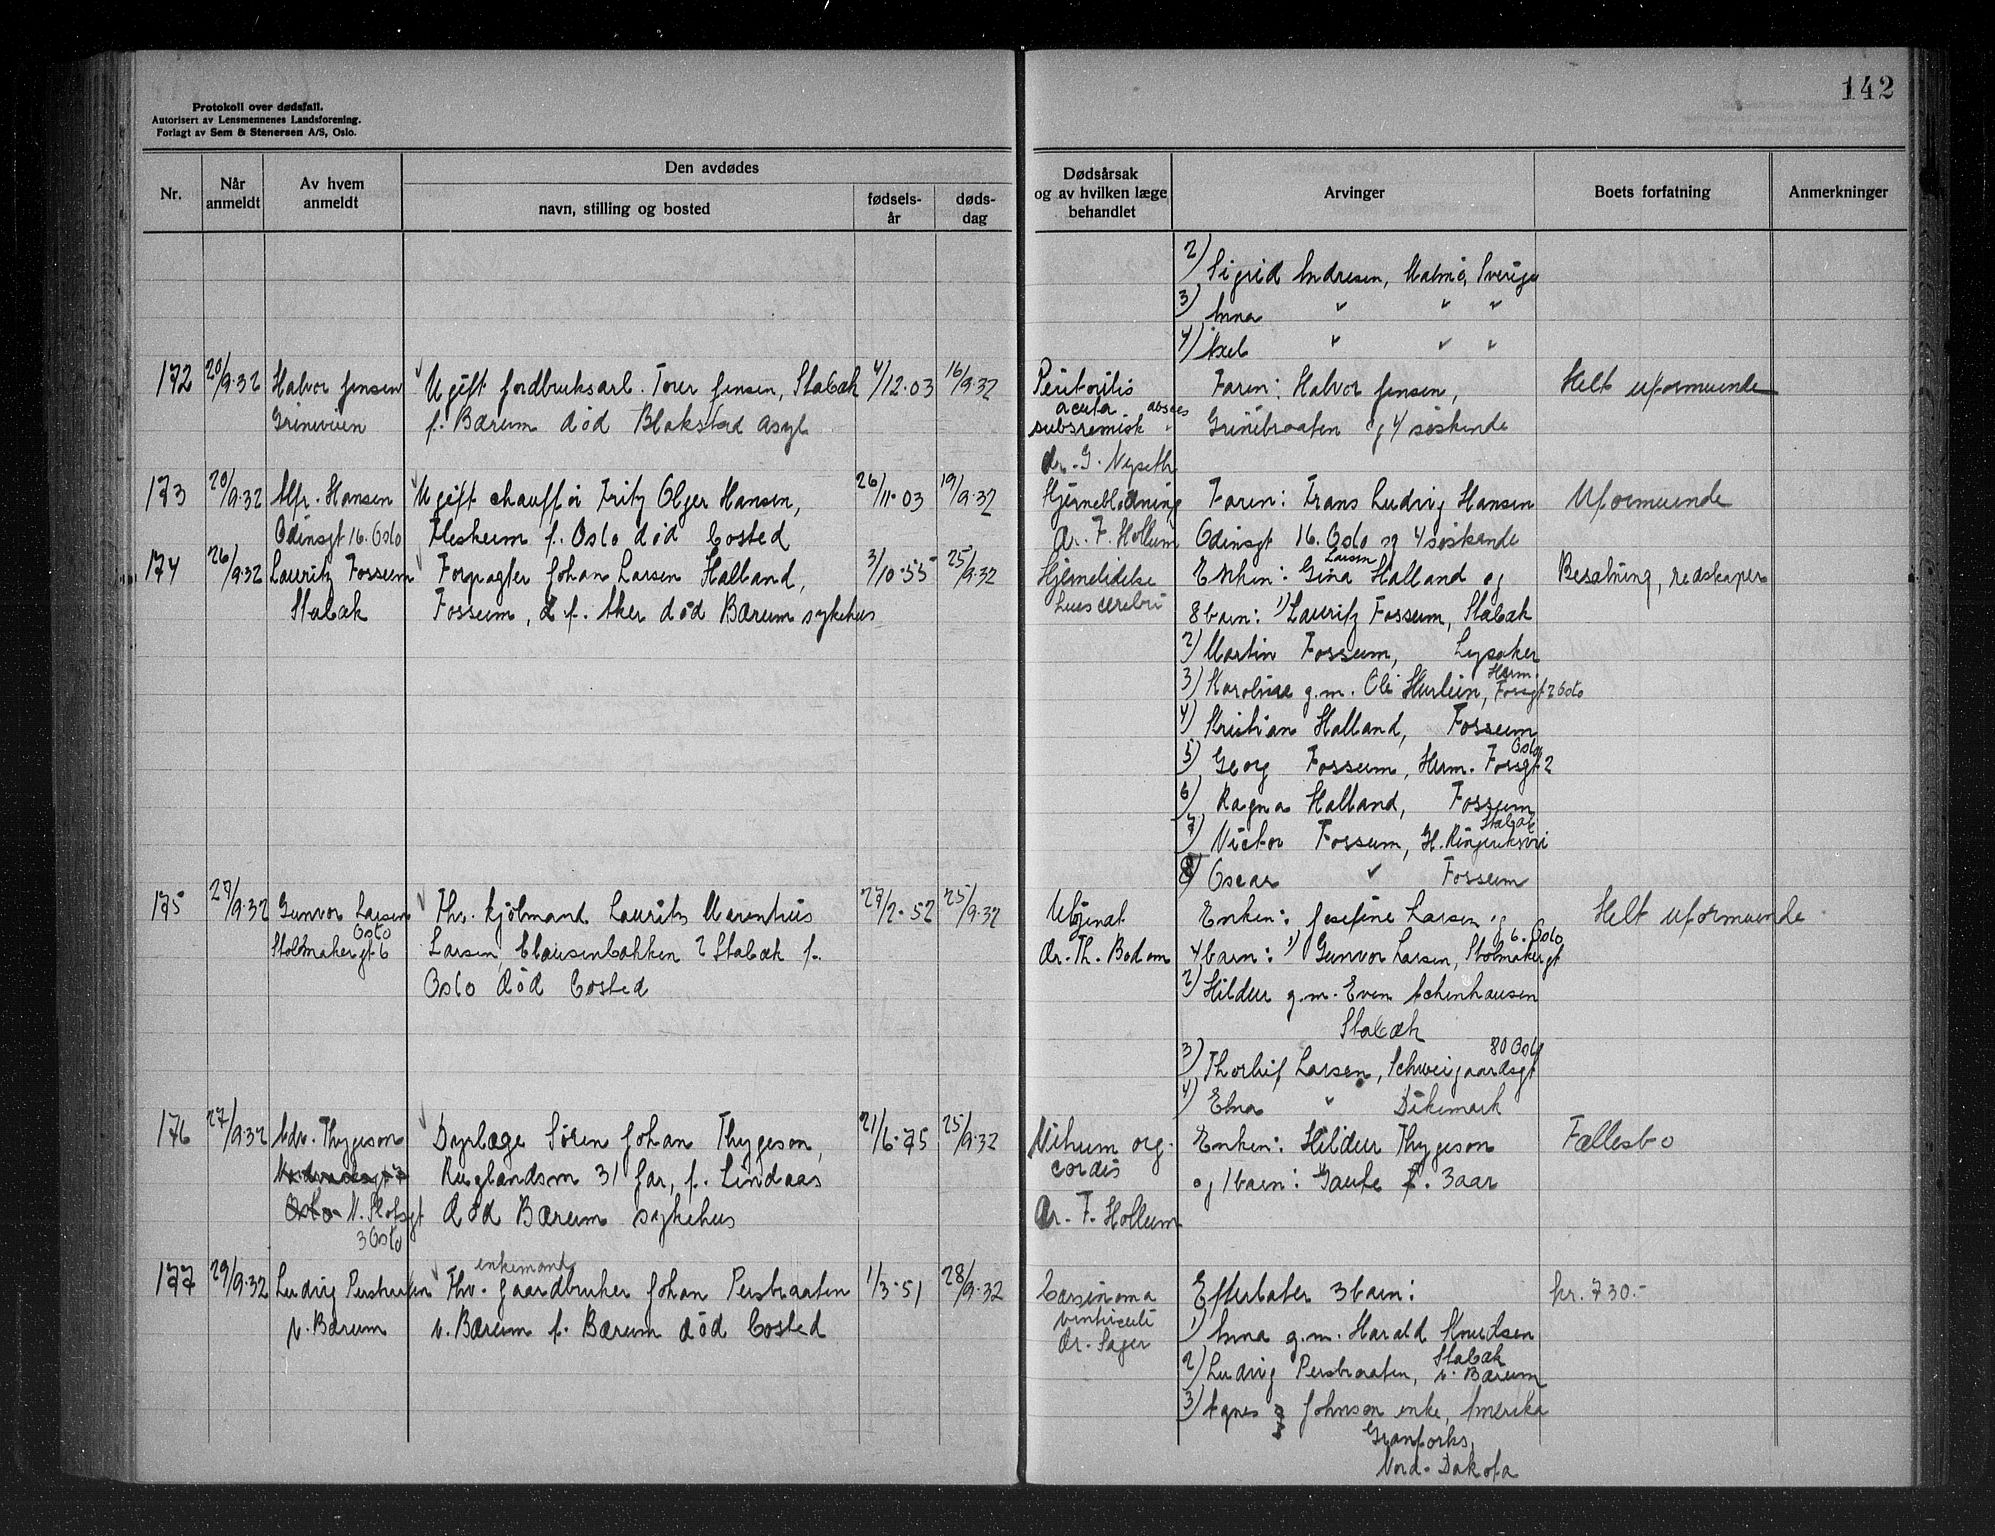 142
Protokoll over dødsfall.
Autorisert av Lensmennenes Landsforening.
Forlagt av Sem & Stenersen A/S, Oslo.
Nr.
Når anmeldt
Av hvem anmeldt
Den avdødes
navn, stilling og bosted
fødsels-år
døds-dag
Dødsårsak og av hvilken læge behandlet
Arvinger
Boets forfatning
Anmerkninger
2) Sigrid Andresen, Malmö, Sverige
3) Anna " " "
4) Axel " " "
172 20/9.32 Halvor Jensen Ugift jordbruksarb. Torer Jensen, Stabæk 4/12.03 16/9.32 Peritonitis Faren: Halvor Jensen, Helt uformuende
Griniveien f. Bærum død Blakstad asyl acuta absces
Grinibraaten og 4 søskende
dr. G. Nyseth
173 20/9.32 Alfr. Hansen Ugift chauffør Fritz Olger Hansen, 26/11.03 19/9.32 Hjerneblødning Faren: Frans Ludvig Hansen Uformuende
Odinsgt 16. Oslo Fleskum f. Oslo død bosted dr. F. Hollum Odinsgt 16. Oslo og 4 søskende
174 26/9.32 Lauritz Fossum Forpagter Johan Larsen Halland, 3/10.55 25/9.32 Hjernelidelse Enken: Gina Larsen Halland og Besætning, redskaper
Stabæk Fossum, d f. Aker død Bærum sykehus Lues cerebri 8 barn: 1) Lauritz Fossum, Stabæk
2) Martin Fossum, Lysaker
3) Karoline g.m. Ole Herm. Fossgt 2 Oslo
4) Kristian Halland, Fossum
5) Georg Fossum, Herm. Fossgt 2 Oslo
6) Ragna Halland, Fossum
7) Victor Fossum, Gl. Ringeriksvei Stabæk
8) Oscar " Fossum
175 27/9.32 Gunvor Larsen Fhv. kjølmand Lauritz Marentius 27/2.52 25/9.32 Ubjenat Enken: Josefine Larsen og Helt uformuende
Stolmakergt 6 Oslo Larsen, Clausenbakken 2 Stabæk f. dr. Th. Bodom 4 barn: 1) Gunvor Larsen, Stolmakergt 6. Oslo
Oslo død bosted 2) Hildur g.m. Even Achenhausen
Stabæk
3) Thorleif Larsen, Schweigaardsgt 80 Oslo
4) Edna " Dikemark
176 27/9.32 Adv. Thygeson Dyrlæge Søren Johan Thygeson, 21/6.75 25/9.32 Vitium org. Enken: Hildur Thygeson Fællesbo
Ruglandsvn 31 Jar, f. Lindaas cordis og 1 barn: Gaute f. 3 aar
Oslo N. Slotsgt død Bærum sykehus dr. F. Hollum
3 Oslo
177 29/9.32 Ludvig Persbraaten Fhv. enkemand gaardbruker Johan Persbraaten 1/3.51 28/9.32 Carsinoma Efterlater 3 barn: kr. 730.-
v. Bærum v. Bærum f. Bærum død bosted ventriculi 1) Anna g.m. Harald Knudsen
dr. Sager Stabæk
2) Ludvig Persbraaten, v. Bærum
3) Agnes Johnson enke, Amerika
Granforks,
Nord-Dakota